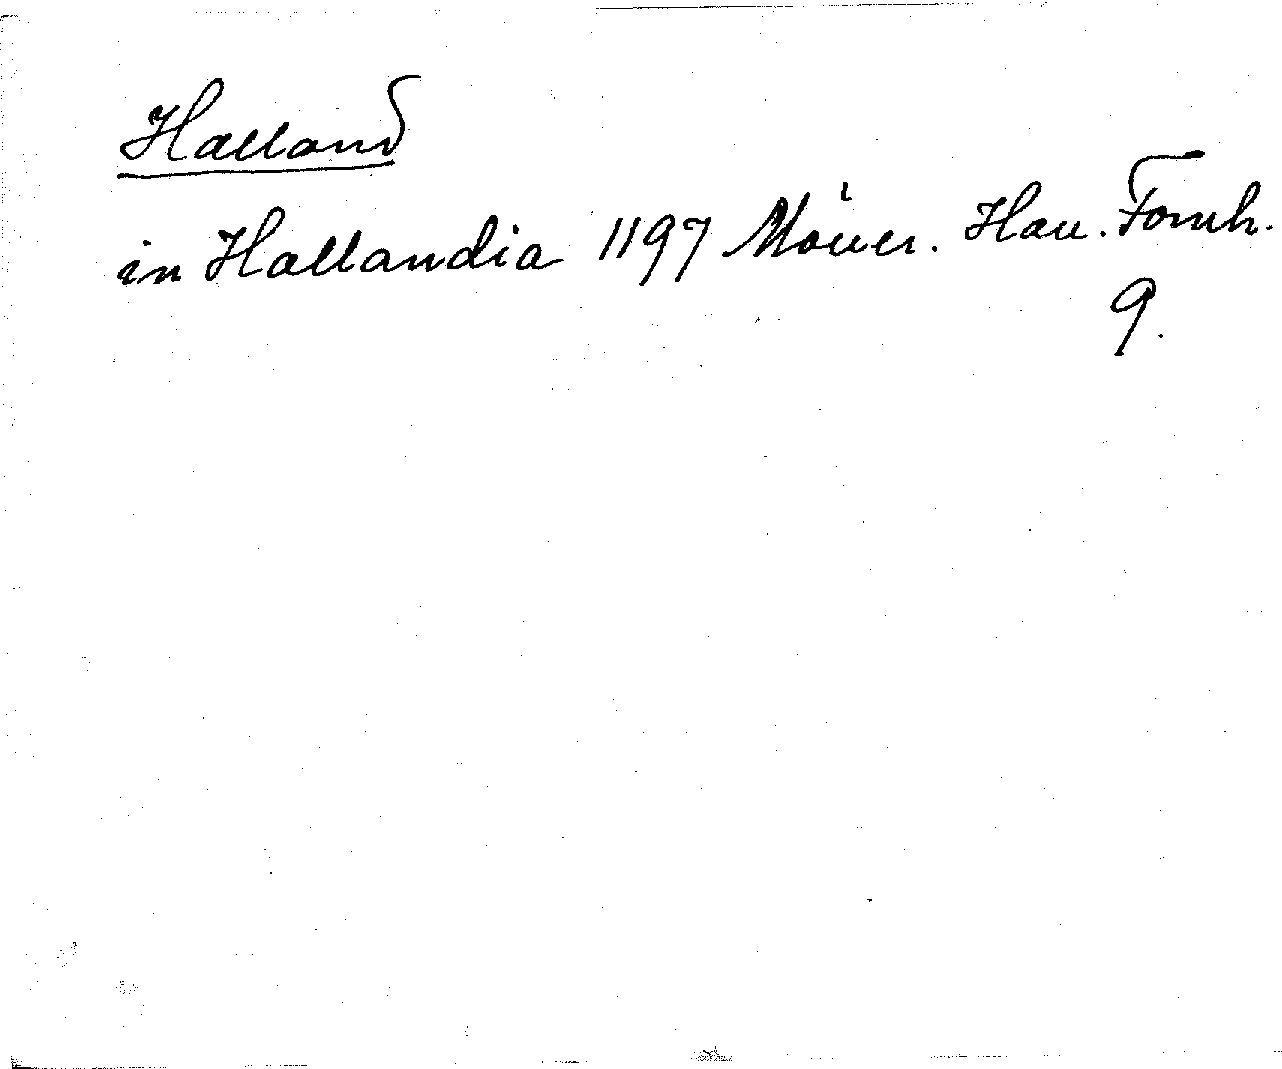 Halland
in Hallandia 1197 Möller. Hall. Fornh.
9.